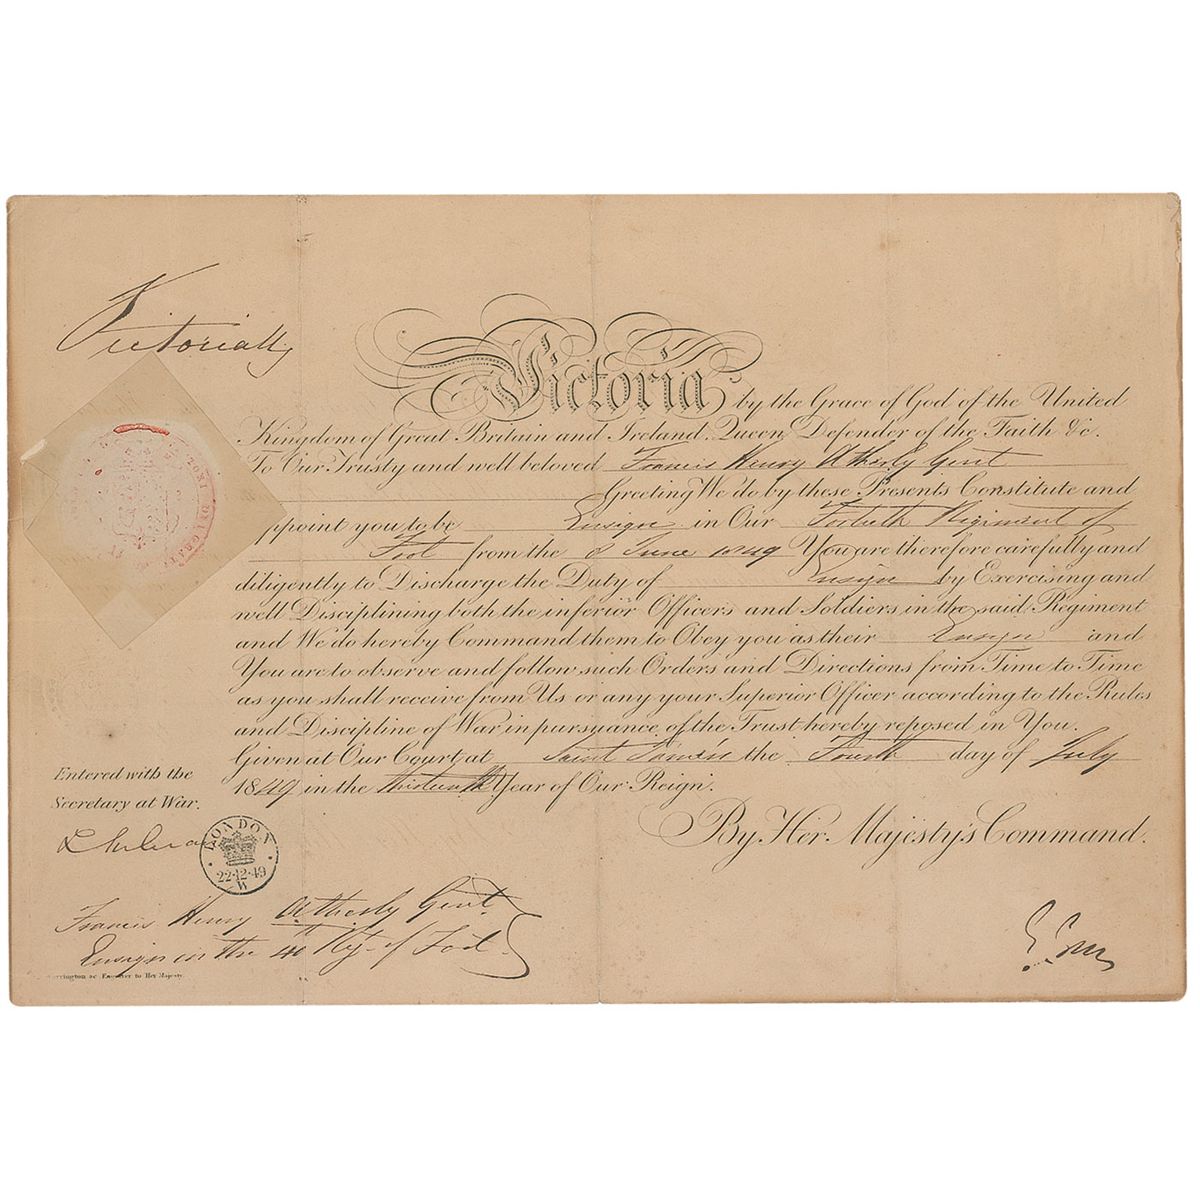 Victoria R
Victoria by the Grace of God of the United
Kingdom of Great Britain and Ireland, Queen, Defender of the Faith &c.
To Our Trusty and well beloved Francis Henry Atherly Gent
Greeting We do by these Presents Constitute and
appoint you to be Ensign in Our Fortieth Regiment of
Foot from the 8 June 1849 You are therefore carefully and
diligently to Discharge the Duty of Ensign by Exercising and
well Disciplining both the inferior Officers and Soldiers in the said Regiment
and We do hereby Command them to Obey you as their Ensign and
You are to observe and follow such Orders and Directions from Time to Time
as you shall receive from Us or any your Superior Officer according to the Rules
and Discipline of War in pursuance of the Trust hereby reposed in You.
Given at Our Court at Saint James's the Fourth day of July
1849 in the thirteenth Year of Our Reign.
By Her Majesty's Command.
Entered with the
Secretary at War.
LONDON
22·12·49
W
Francis Henry Atherly Gent.
Ensign in the 40 Reg. of Foot
Engraver to Her Majesty